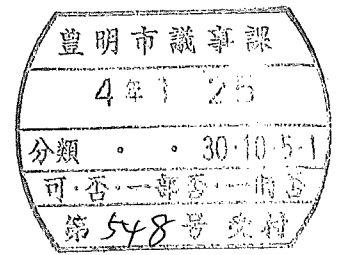 豊明市議事課
4年1 25
分類 ・ ・ 30・10・5・1
可・否・一部否・一時否
第548号受付